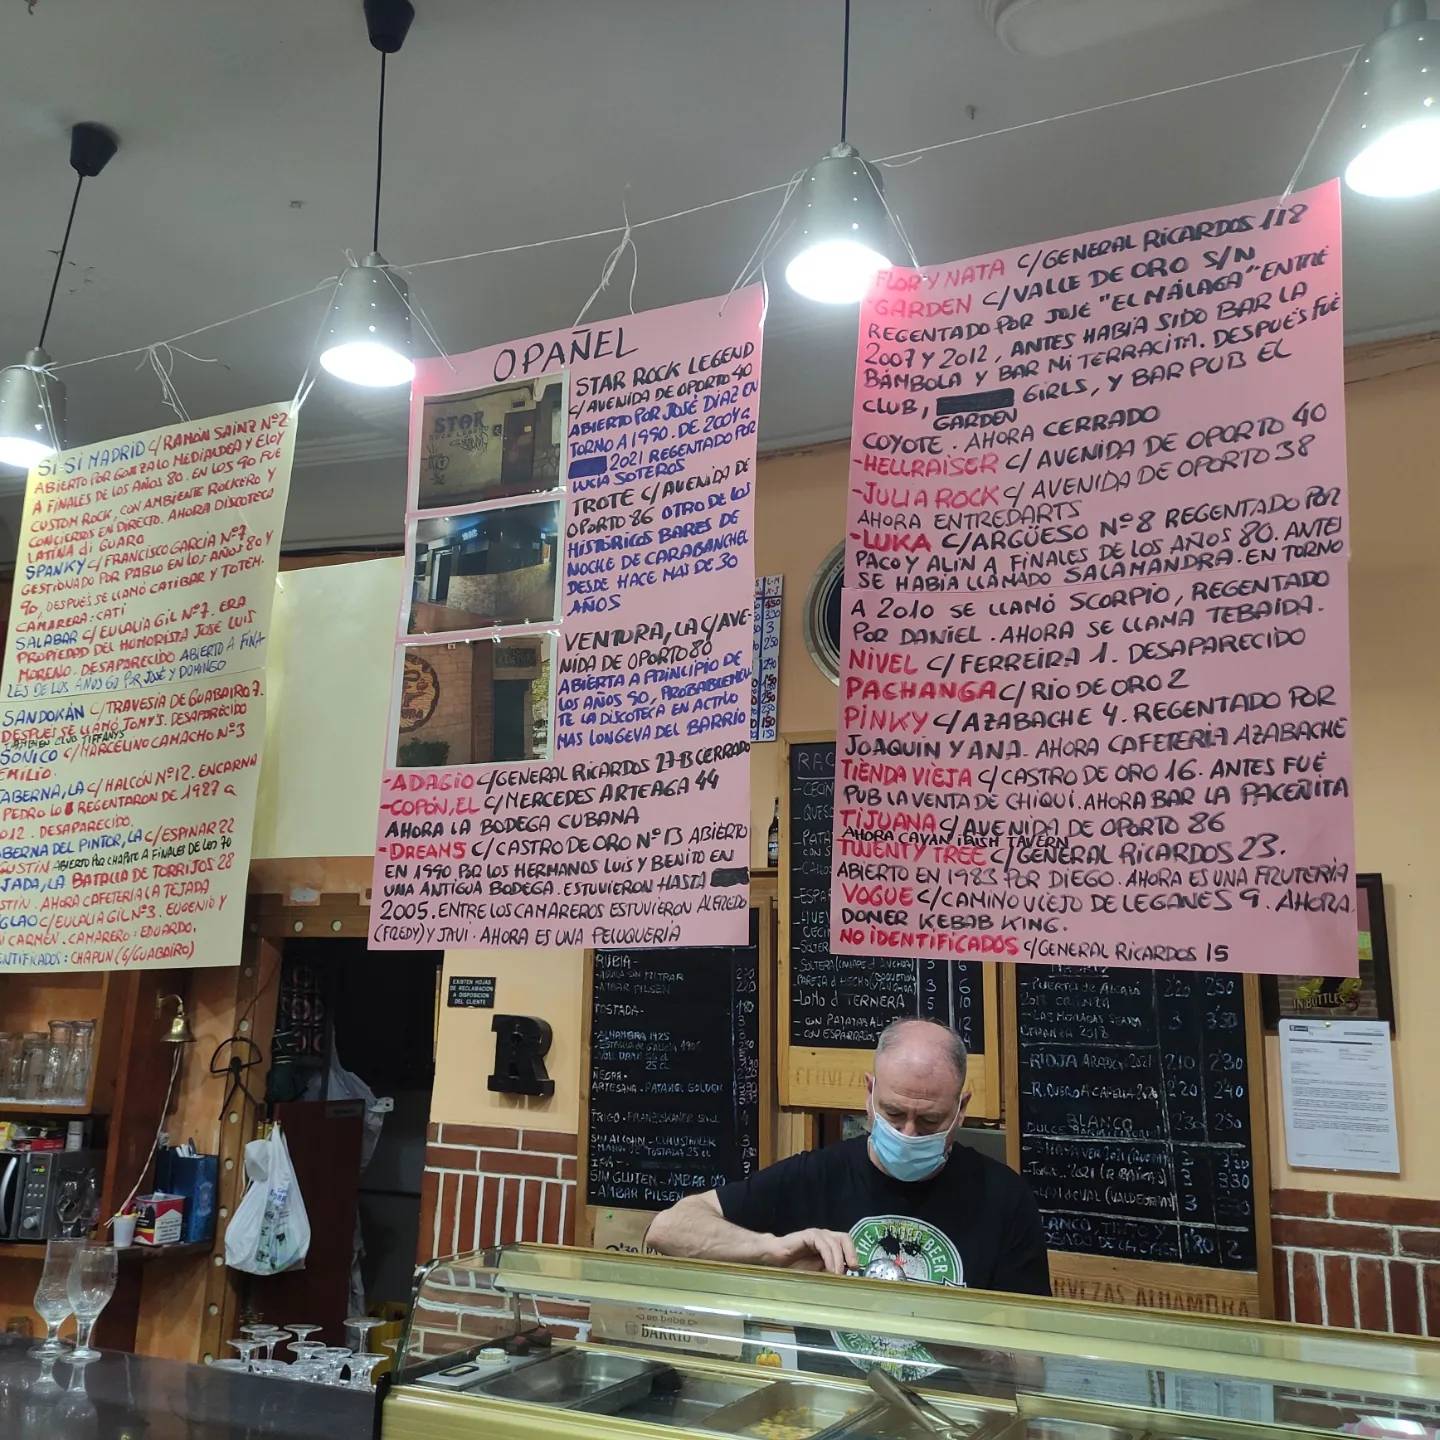 SI-SI MADRID C/RAMÓN SAINZ Nº2
ABIERTO POR GONZALO MEDIALDEA Y ELOY
A FINALES DE LOS AÑOS 80. EN LOS 90 FUE
CUSTOM ROCK, CON AMBIENTE ROCKERO Y
CONCIERTOS EN DIRECTO. AHORA DISCOTECA
LATINA di GUARO
SPANKY C/FRANCISCO GARCÍA Nº7
GESTIONADO POR PABLO EN LOS AÑOS 80 Y
90, DESPUÉS SE LLAMÓ CATIBAR Y TOTEM.
CAMARERA: CATI
SALABAR C/EULALIA GIL Nº7. ERA
PROPIEDAD DEL HUMORISTA JOSÉ LUIS
MORENO. DESAPARECIDO ABIERTO A FINA
LES DE LOS AÑOS 60 POR JOSÉ Y DOMINGO
SANDOKÁN C/TRAVESIA DE GUABAIRO 7.
DESPUES SE LLAMÓ TONYS. DESAPARECIDO
TAMBIEN CLUB TIFFANYS
SONICO C/MARCELINO CAMACHO Nº3
EMILIO.
TABERNA, LA C/HALCÓN Nº12. ENCARNA
PEDRO LO REGENTARON DE 1987 a
012. DESAPARECIDO.
BERNA DEL PINTOR, LA C/ESPINAR 22
GUSTIN ABIERTO POR CHAPATO A FINALES DE LOS 70
JADA, LA BATALLA DE TORRIJOS 28
STÍN. AHORA CAFETERIA LA TEJADA
GLAO C/EULALIA GIL Nº3. EUGENIO Y
CARMEN. CAMARERO: EDUARDO,
ENTIFICADOS: CHAPUN (C/GUABAIRO)
OPAÑEL
STAR ROCK LEGEND
C/AVENIDA DE OPORTO 40
ABIERTO POR JOSÉ DÍAZ EN
TORNO A 1990. DE 2004 a
2021 REGENTADO POR
LUCÍA SOTEROS
TROTE C/AVENIDA DE
OPORTO 86 OTRO DE LOS
HISTÓRICOS BARES DE
NOCHE DE CARABANCHEL
DESDE HACE MAS DE 30
AÑOS
VENTURA, LA C/AVE-
NIDA DE OPORTO 80
ABIERTA A PRINCIPIO DE
LOS AÑOS 90, PROBABLEMEN
TE LA DISCOTECA EN ACTIVO
MAS LONGEVA DEL BARRIO
-ADAGIO C/GENERAL RICARDOS 27-B CERRADO
-COPÓN, EL C/MERCEDES ARTEAGA 44
AHORA LA BODEGA CUBANA
-DREAMS C/CASTRO DE ORO Nº13 ABIERTO
EN 1990 POR LOS HERMANOS LUIS Y BENITO EN
UNA ANTIGUA BODEGA. ESTUVIERON HASTA
2005. ENTRE LOS CAMAREROS ESTUVIERON ALFREDO
(FREDY) Y JAVI. AHORA ES UNA PELUQUERIA
-FLOR Y NATA C/GENERAL RICARDOS 118
-GARDEN C/VALLE DE ORO S/N
REGENTADO POR JOSÉ "EL MÁLAGA" ENTRE
2007 Y 2012, ANTES HABÍA SIDO BAR LA
BÁMBOLA Y BAR MI TERRACITA. DESPUÉS FUE
CLUB, GIRLS, Y BAR PUB EL
GARDEN
COYOTE. AHORA CERRADO
-HELLRAISER C/AVENIDA DE OPORTO 40
-JULIA ROCK C/AVENIDA DE OPORTO 38
AHORA ENTREDARTS
-LUKA C/ARGÜESO Nº8 REGENTADO POR
PACO Y ALIN A FINALES DE LOS AÑOS 80. ANTES
SE HABÍA LLAMADO SALAMANDRA. EN TORNO
A 2010 SE LLAMÓ SCORPIO, REGENTADO
POR DANIEL. AHORA SE LLAMA TEBAIDA.
NIVEL C/FERREIRA 1. DESAPARECIDO
PACHANGA C/RIO DE ORO 2
PINKY C/AZABACHE 4. REGENTADO POR
JOAQUIN Y ANA. AHORA CAFETERIA AZABACHE
TIENDA VIEJA C/CASTRO DE ORO 16. ANTES FUE
PUB LA VENTA DE CHIQUI. AHORA BAR LA PACEÑITA
TIJUANA C/AVENIDA DE OPORTO 86
AHORA CAVAN IRISH TAVERN
TWENTY TREE C/GENERAL RICARDOS 23.
ABIERTO EN 1983 POR DIEGO. AHORA ES UNA FRUTERÍA
VOGUE C/CAMINO VIEJO DE LEGANES 9. AHORA
DONER KEBAB KING.
NO IDENTIFICADOS C/GENERAL RICARDOS 15
EXISTEN HOJAS
DE RECLAMACIÓN
A DISPOSICIÓN
DEL CLIENTE
R
RUBIA-
-AMBAR PILSEN
TOSTADA-
-ALHAMBRA 1925
NEGRA-
SIN GLUTEN-AMBAR
-AMBAR PILSEN
-LOMO d TERNERA 5 10
RIOJA
BLANCO
CERVEZAS ALHAMBRA
IN BOTTLES
BARRIO